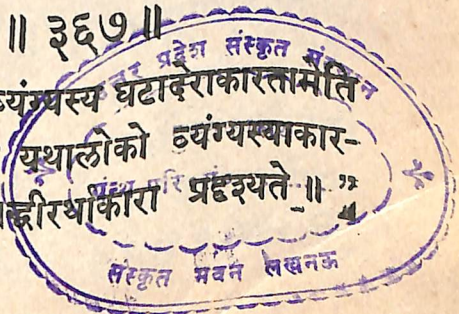 ॥ ३६७ ॥
व्यंग्यस्य घटादेराकारतामेति
यथालोको व्यंग्यस्याकार-
द्धीरर्थाकारा प्रदृश्यते ॥ ”
उत्तर प्रदेश संस्कृत संस्थान
संस्कृत भवन लखनऊ